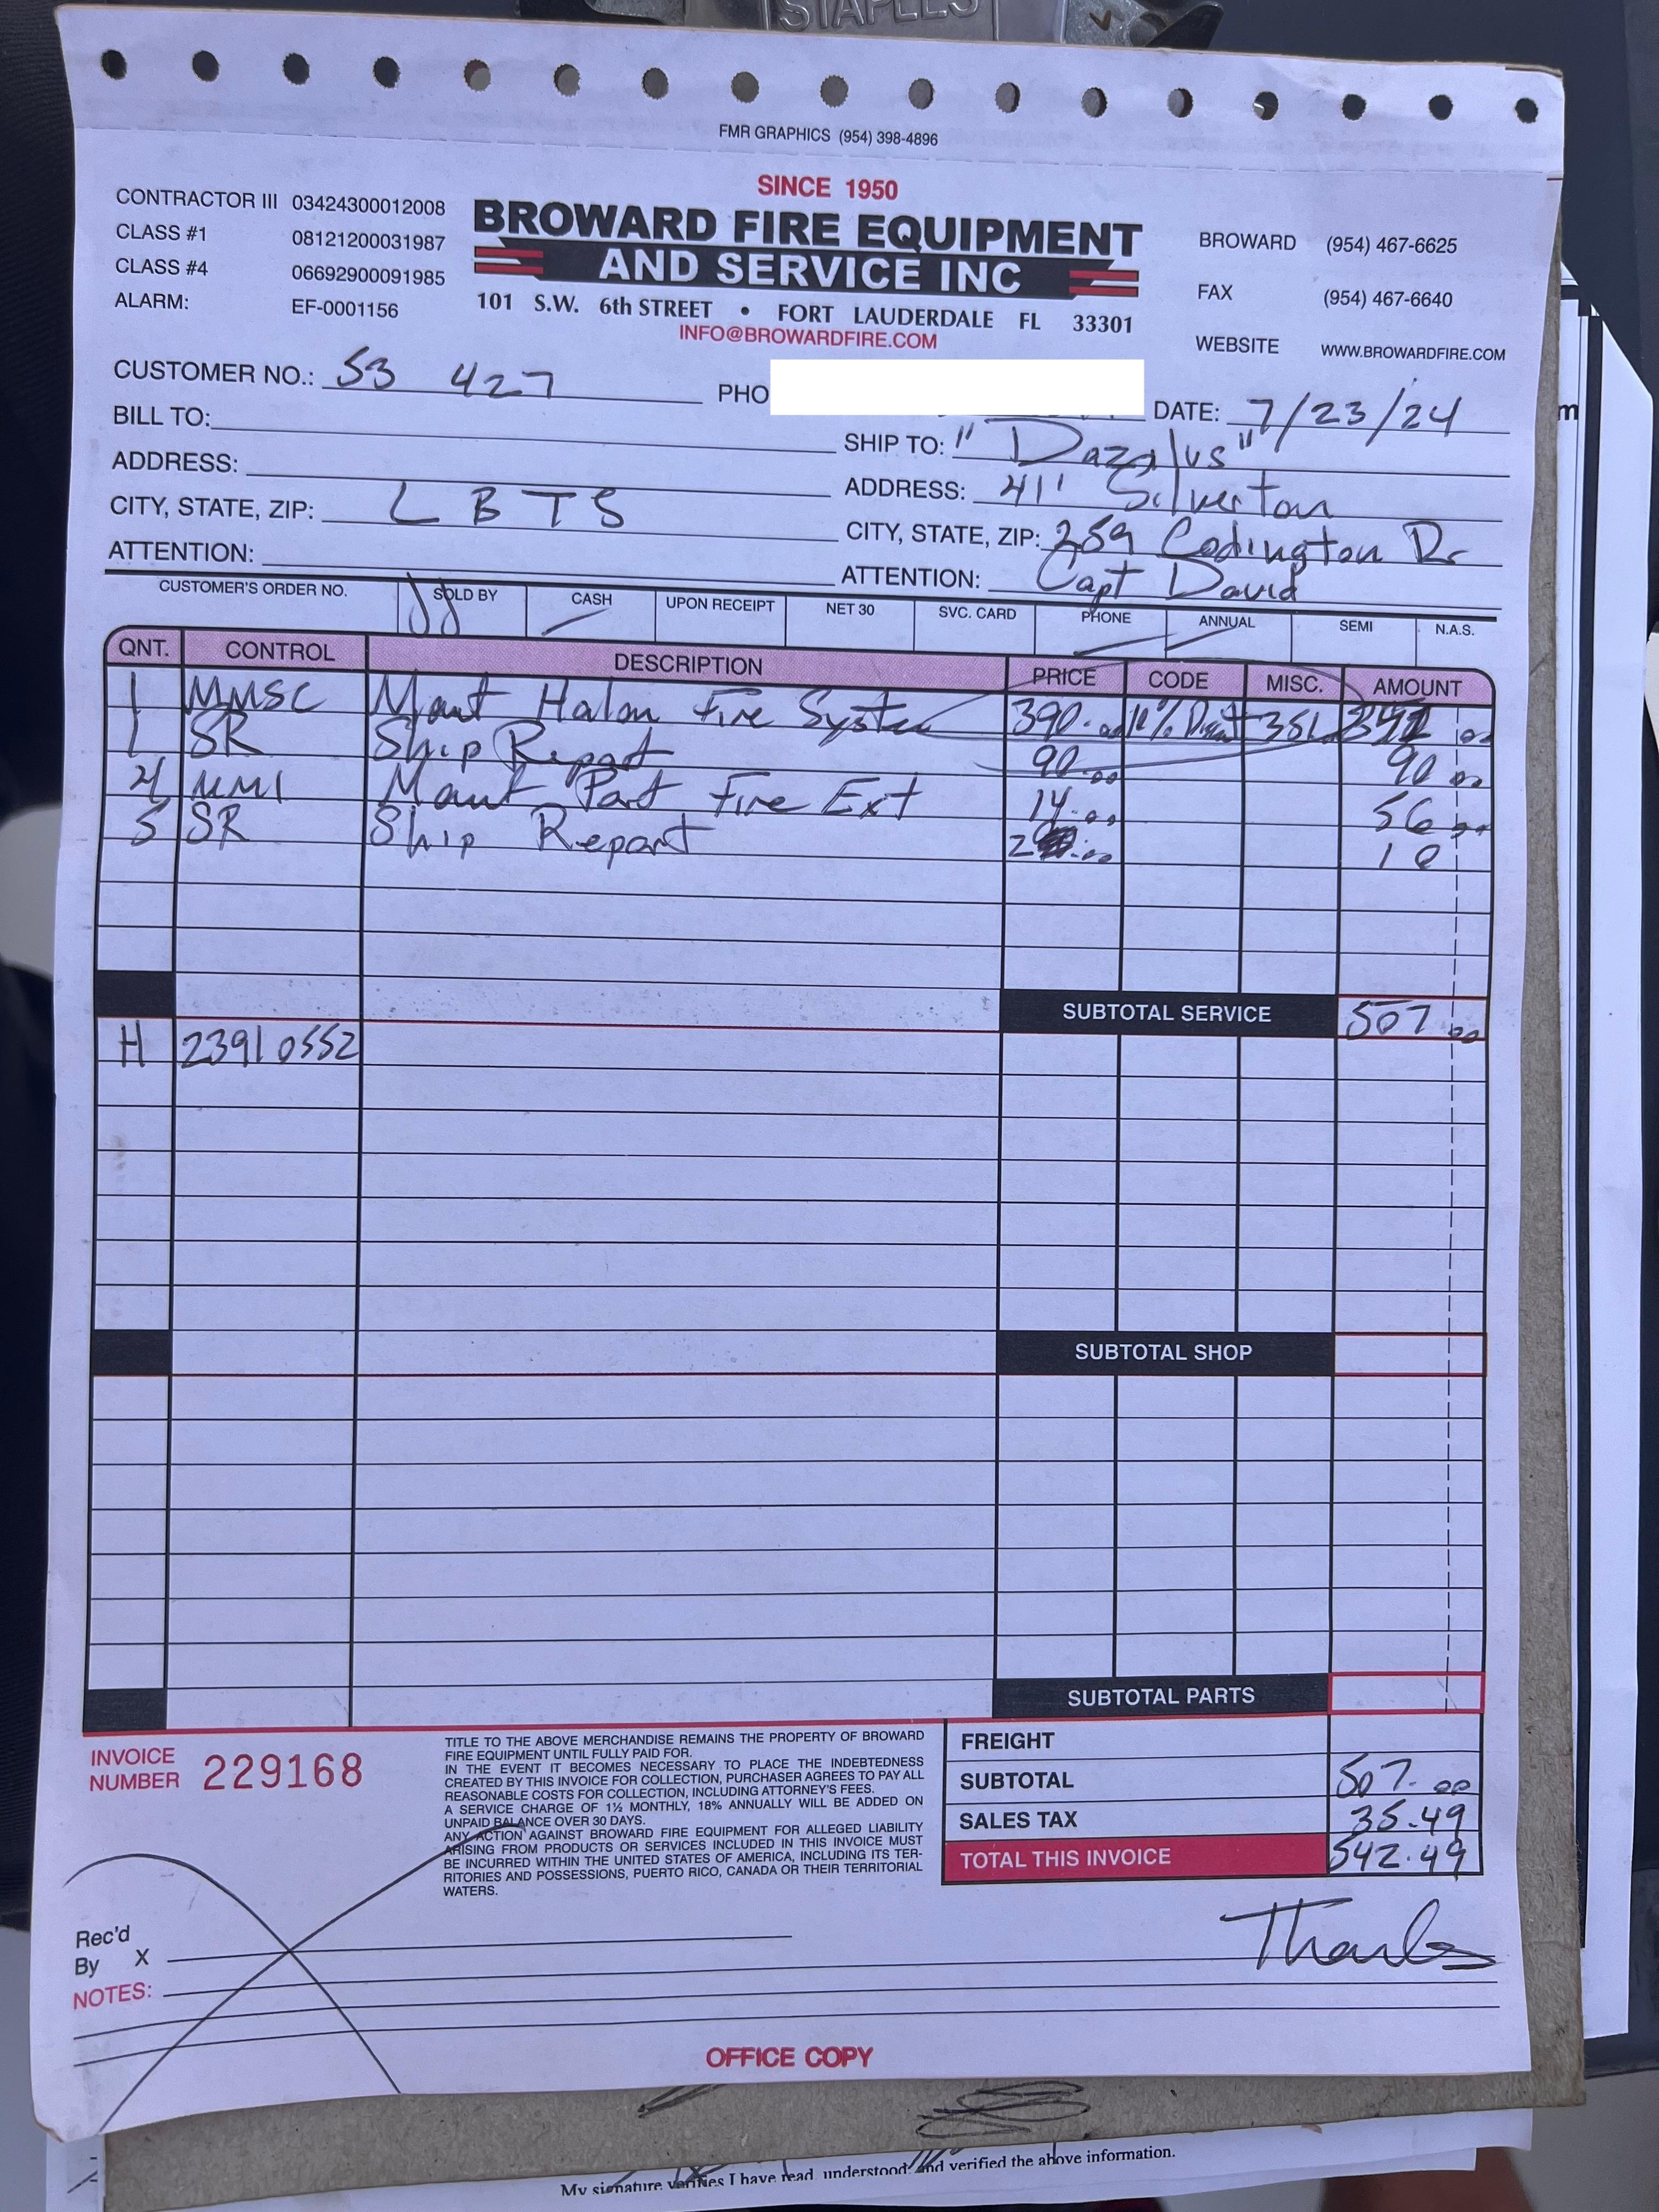 STAPLES
FMR GRAPHICS (954) 398-4896
SINCE 1950
BROWARD FIRE EQUIPMENT
AND SERVICE INC
101 S.W. 6th STREET • FORT LAUDERDALE FL 33301
INFO@BROWARDFIRE.COM
CONTRACTOR III 03424300012008
CLASS #1 08121200031987
CLASS #4 06692900091985
ALARM: EF-0001156
BROWARD (954) 467-6625
FAX (954) 467-6640
WEBSITE WWW.BROWARDFIRE.COM
CUSTOMER NO.: 53 427 PHO DATE: 7/23/24
BILL TO:
ADDRESS:
CITY, STATE, ZIP: L B T S
ATTENTION:
SHIP TO: "Dazalus"
ADDRESS: 41' Silverton
CITY, STATE, ZIP: 259 Codington Dr
ATTENTION: Capt David
CUSTOMER'S ORDER NO. SOLD BY CASH UPON RECEIPT NET 30 SVC. CARD PHONE ANNUAL SEMI N.A.S.
JJ
QNT. CONTROL DESCRIPTION PRICE CODE MISC. AMOUNT
1 MMSC Maut Halon Fire System 390.00 10% 351
1 SR Ship Repart 90.00 90 00
4 MM1 Maut Part Fire Ext 14.00 56 00
5 SR Ship Repart 2 .00 10
SUBTOTAL SERVICE 507 00
H 23910552
SUBTOTAL SHOP
SUBTOTAL PARTS
INVOICE
NUMBER 229168
TITLE TO THE ABOVE MERCHANDISE REMAINS THE PROPERTY OF BROWARD
FIRE EQUIPMENT UNTIL FULLY PAID FOR.
IN THE EVENT IT BECOMES NECESSARY TO PLACE THE INDEBTEDNESS
CREATED BY THIS INVOICE FOR COLLECTION, PURCHASER AGREES TO PAY ALL
REASONABLE COSTS FOR COLLECTION, INCLUDING ATTORNEY'S FEES.
A SERVICE CHARGE OF 1½ MONTHLY, 18% ANNUALLY WILL BE ADDED ON
UNPAID BALANCE OVER 30 DAYS.
ANY ACTION AGAINST BROWARD FIRE EQUIPMENT FOR ALLEGED LIABILITY
ARISING FROM PRODUCTS OR SERVICES INCLUDED IN THIS INVOICE MUST
BE INCURRED WITHIN THE UNITED STATES OF AMERICA, INCLUDING ITS TER-
RITORIES AND POSSESSIONS, PUERTO RICO, CANADA OR THEIR TERRITORIAL
WATERS.
FREIGHT
SUBTOTAL 507.00
SALES TAX 35.49
TOTAL THIS INVOICE 542.49
Rec'd
By X
NOTES:
Thanks
OFFICE COPY
My signature verifies I have read, understood, and verified the above information.